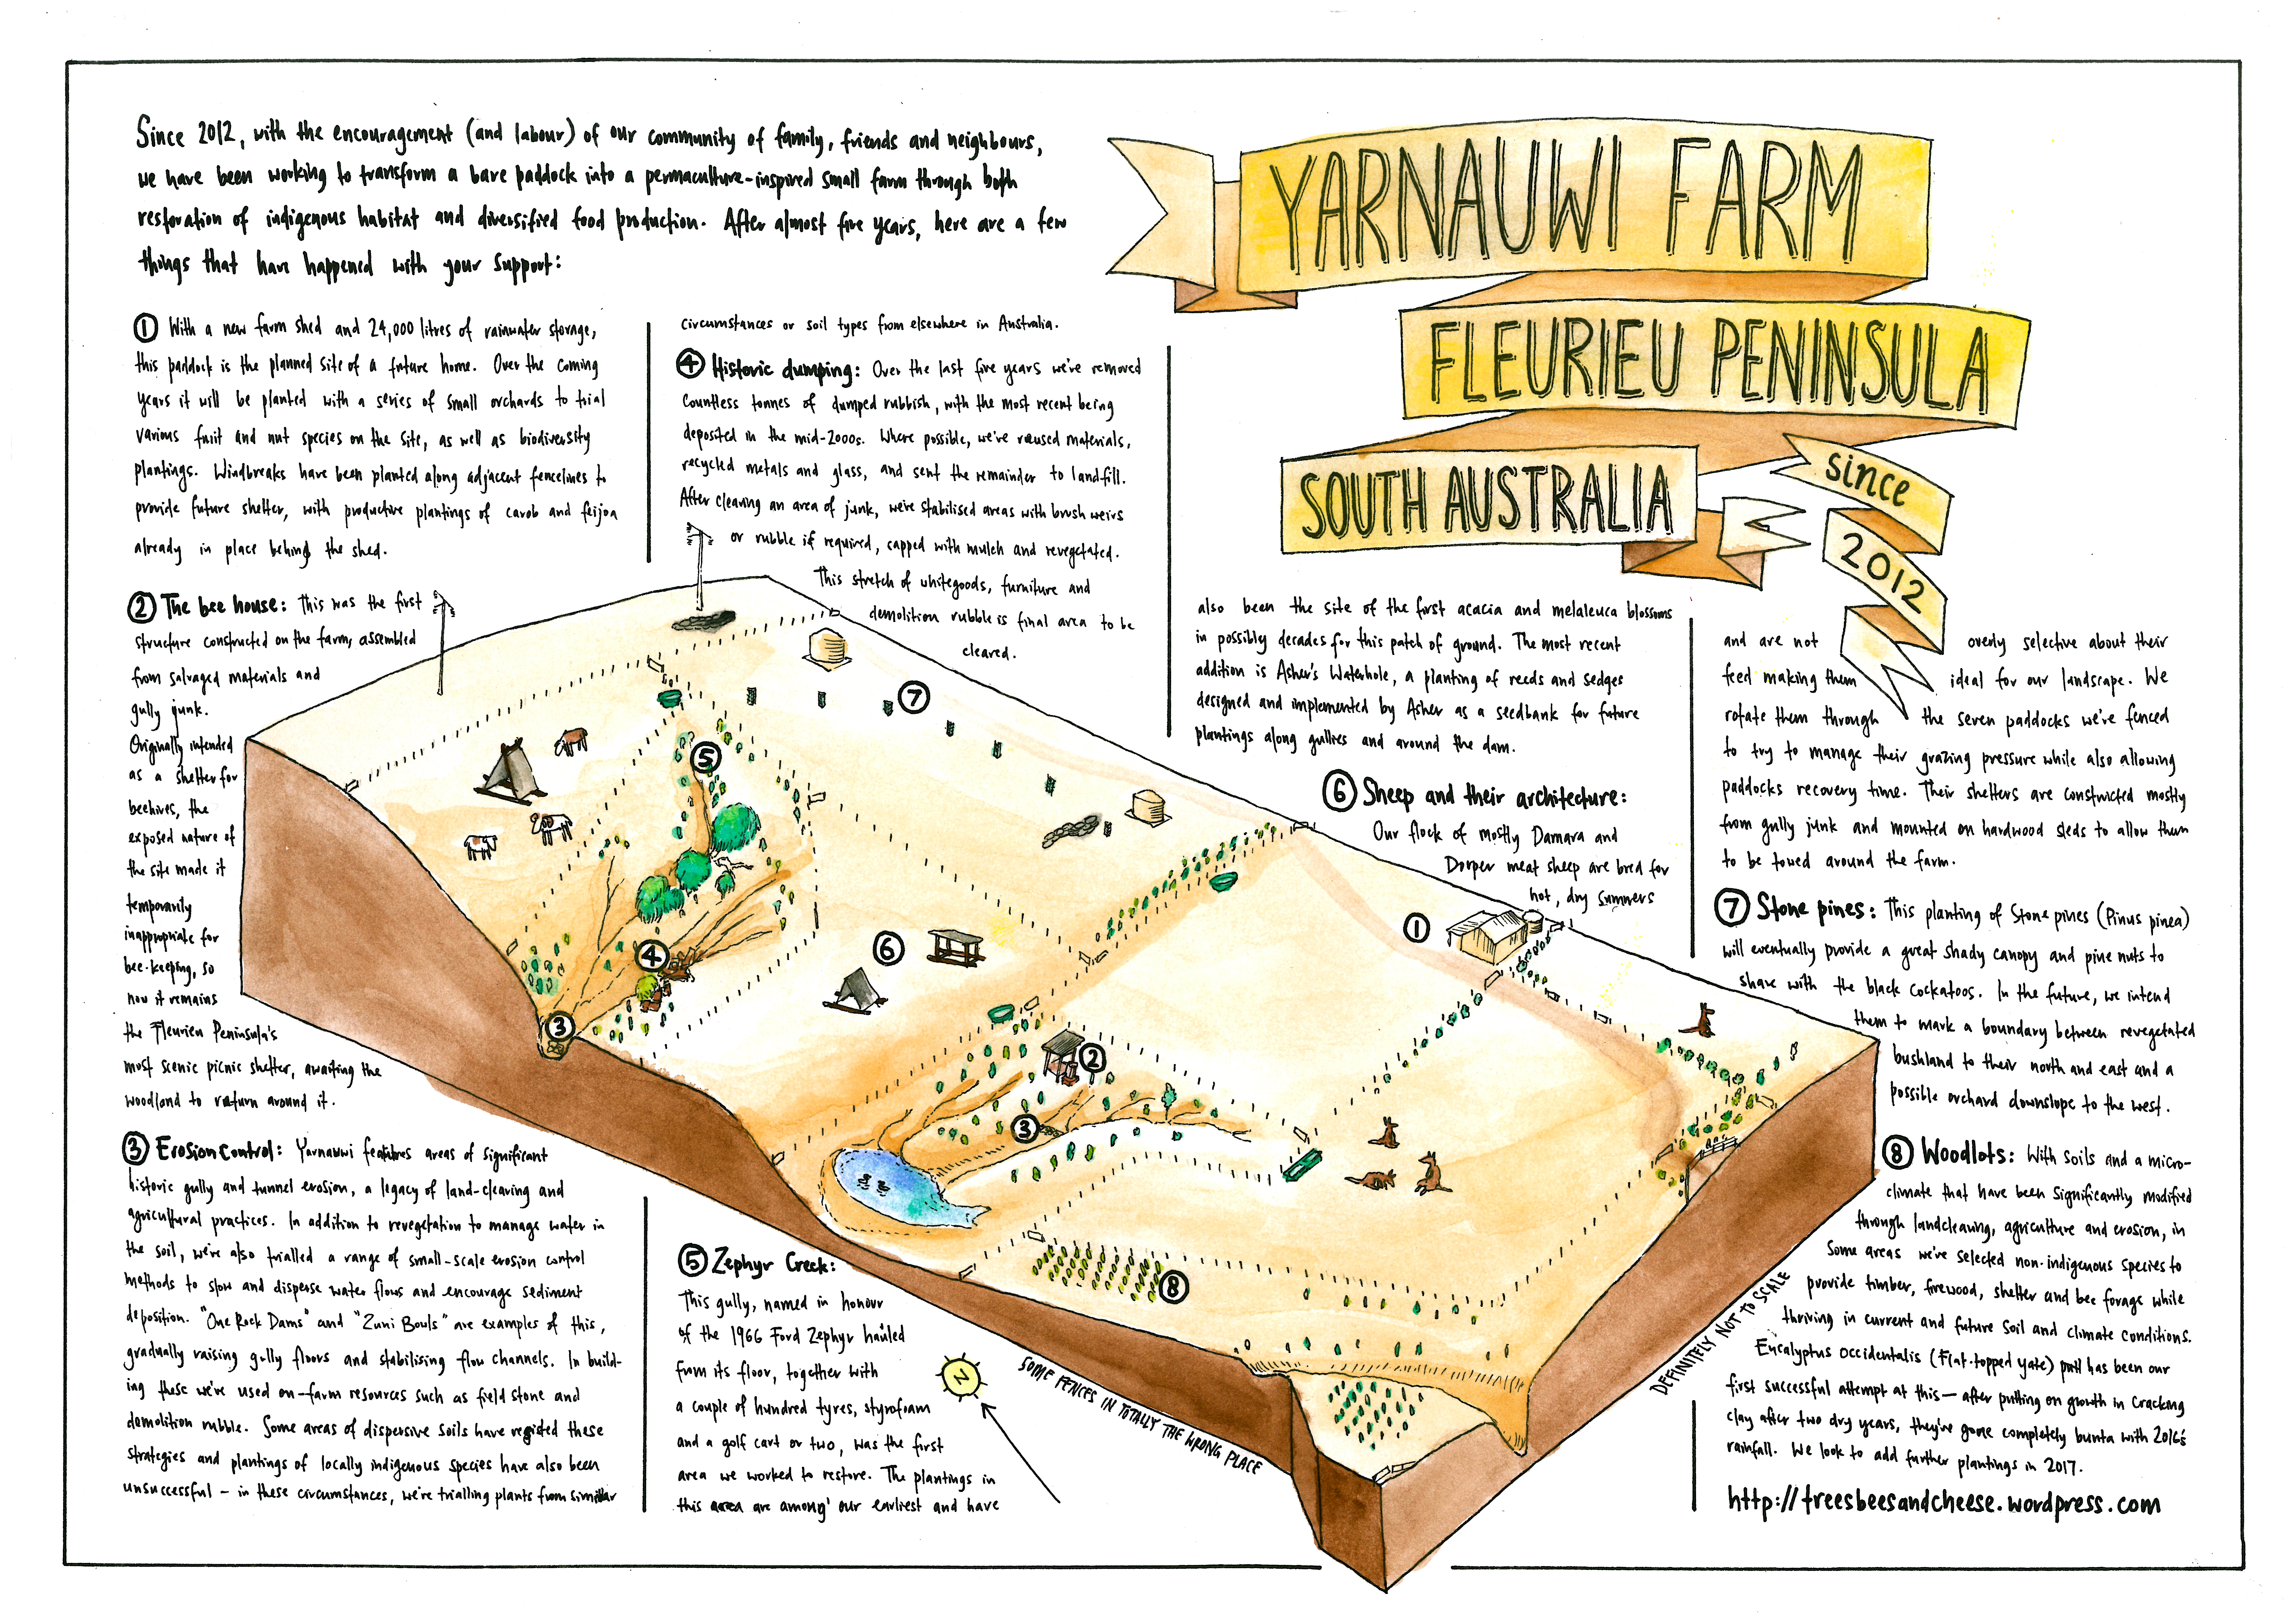 Since 2012, with the encouragement (and labour) of our community of family, friends and neighbours,
we have been working to transform a bare paddock into a permaculture-inspired small farm through both
restoration of indigenous habitat and diversified food production. After almost five years, here are a few
things that have happened with your support:
YARNAUWI FARM
FLEURIEU PENINSULA
SOUTH AUSTRALIA
since
2012
① With a new farm shed and 24,000 litres of rainwater storage,
this paddock is the planned site of a future home. Over the coming
years it will be planted with a series of small orchards to trial
various fruit and nut species on the site, as well as biodiversity
plantings. Windbreaks have been planted along adjacent fencelines to
provide future shelter, with productive plantings of carob and feijoa
already in place behind the shed.
② The bee house: This was the first
structure constructed on the farm, assembled
from salvaged materials and
gully junk.
Originally intended
as a shelter for
beehives, the
exposed nature of
the site made it
temporarily
inappropriate for
bee-keeping, so
now it remains
the Fleurieu Peninsula's
most scenic picnic shelter, awaiting the
woodland to return around it.
③ Erosion control: Yarnauwi features areas of significant
historic gully and tunnel erosion, a legacy of land-clearing and
agricultural practices. In addition to revegetation to manage water in
the soil, we've also trialled a range of small-scale erosion control
methods to slow and disperse water flows and encourage sediment
deposition. "One Rock Dams" and "Zuni Bowls" are examples of this,
gradually raising gully floors and stabilising flow channels. In build-
ing these we've used on-farm resources such as field stone and
demolition rubble. Some areas of dispersive soils have resisted these
strategies and plantings of locally indigenous species have also been
unsuccessful - in these circumstances, we're trialling plants from similar
circumstances or soil types from elsewhere in Australia.
④ Historic dumping: Over the last five years we've removed
countless tonnes of dumped rubbish, with the most recent being
deposited in the mid-2000s. Where possible, we've reused materials,
recycled metals and glass, and sent the remainder to landfill.
After clearing an area of junk, we've stabilised areas with brush weirs
or rubble if required, capped with mulch and revegetated.
This stretch of whitegoods, furniture and
demolition rubble is final area to be
cleared.
⑤ Zephyr Creek:
This gully, named in honour
of the 1966 Ford Zephyr hauled
from its floor, together with
a couple of hundred tyres, styrofoam
and a golf cart or two, was the first
area we worked to restore. The plantings in
this area are among our earliest and have
also been the site of the first acacia and melaleuca blossoms
in possibly decades for this patch of ground. The most recent
addition is Asher's Waterhole, a planting of reeds and sedges
designed and implemented by Asher as a seedbank for future
plantings along gullies and around the dam.
⑥ Sheep and their architecture:
Our flock of mostly Damara and
Dorper meat sheep are bred for
hot, dry summers
and are not overly selective about their
feed making them ideal for our landscape. We
rotate them through the seven paddocks we've fenced
to try to manage their grazing pressure while also allowing
paddocks recovery time. Their shelters are constructed mostly
from gully junk and mounted on hardwood sleds to allow them
to be towed around the farm.
⑦ Stone pines: This planting of Stone pines (Pinus pinea)
will eventually provide a great shady canopy and pine nuts to
share with the black cockatoos. In the future, we intend
them to mark a boundary between revegetated
bushland to their north and east and a
possible orchard downslope to the west.
⑧ Woodlots: With soils and a micro-
climate that have been significantly modified
through landclearing, agriculture and erosion, in
some areas we've selected non-indigenous species to
provide timber, firewood, shelter and bee forage while
thriving in current and future soil and climate conditions.
Eucalyptus occidentalis (Flat-topped yate) has been our
first successful attempt at this - after putting on growth in cracking
clay after two dry years, they've gone completely bunta with 2016's
rainfall. We look to add further plantings in 2017.
http://treesbeesandcheese.wordpress.com
⑦
⑤
①
⑥
④
③
②
③
⑧
N
SOME FENCES IN TOTALLY THE WRONG PLACE
DEFINITELY NOT TO SCALE